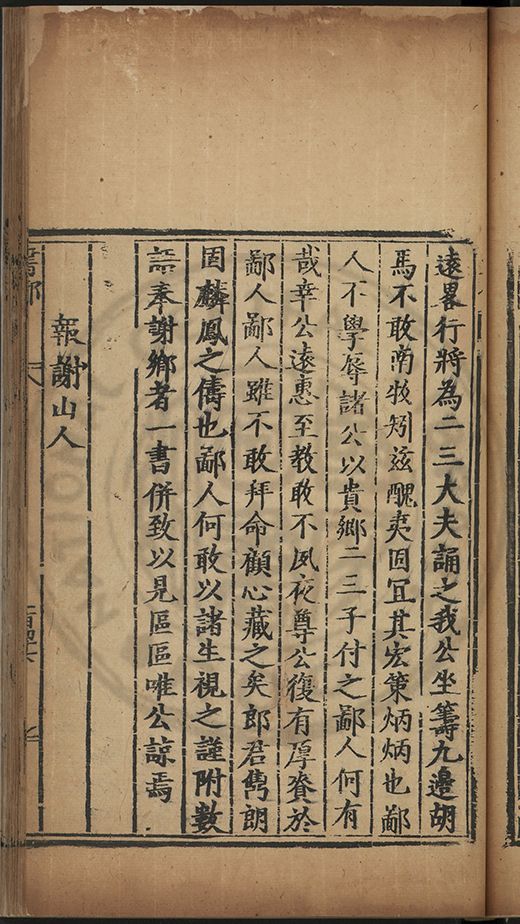 遠畧行將為二三大夫誦之我公坐籌九邊胡
馬不敢南牧矧茲醜夷固宜其宏策炳炳也鄙
人不學辱諸公以貴鄉二三子付之鄙人何有
哉幸公遠惠至教敢不夙夜尊公復有厚賚於
鄙人鄙人雖不敢拜命顧心藏之矣郎君雋朗
固麟鳳之儔也鄙人何敢以諸生視之謹附數
語奉謝鄉者一書併致以見區區唯公諒焉
報謝山人